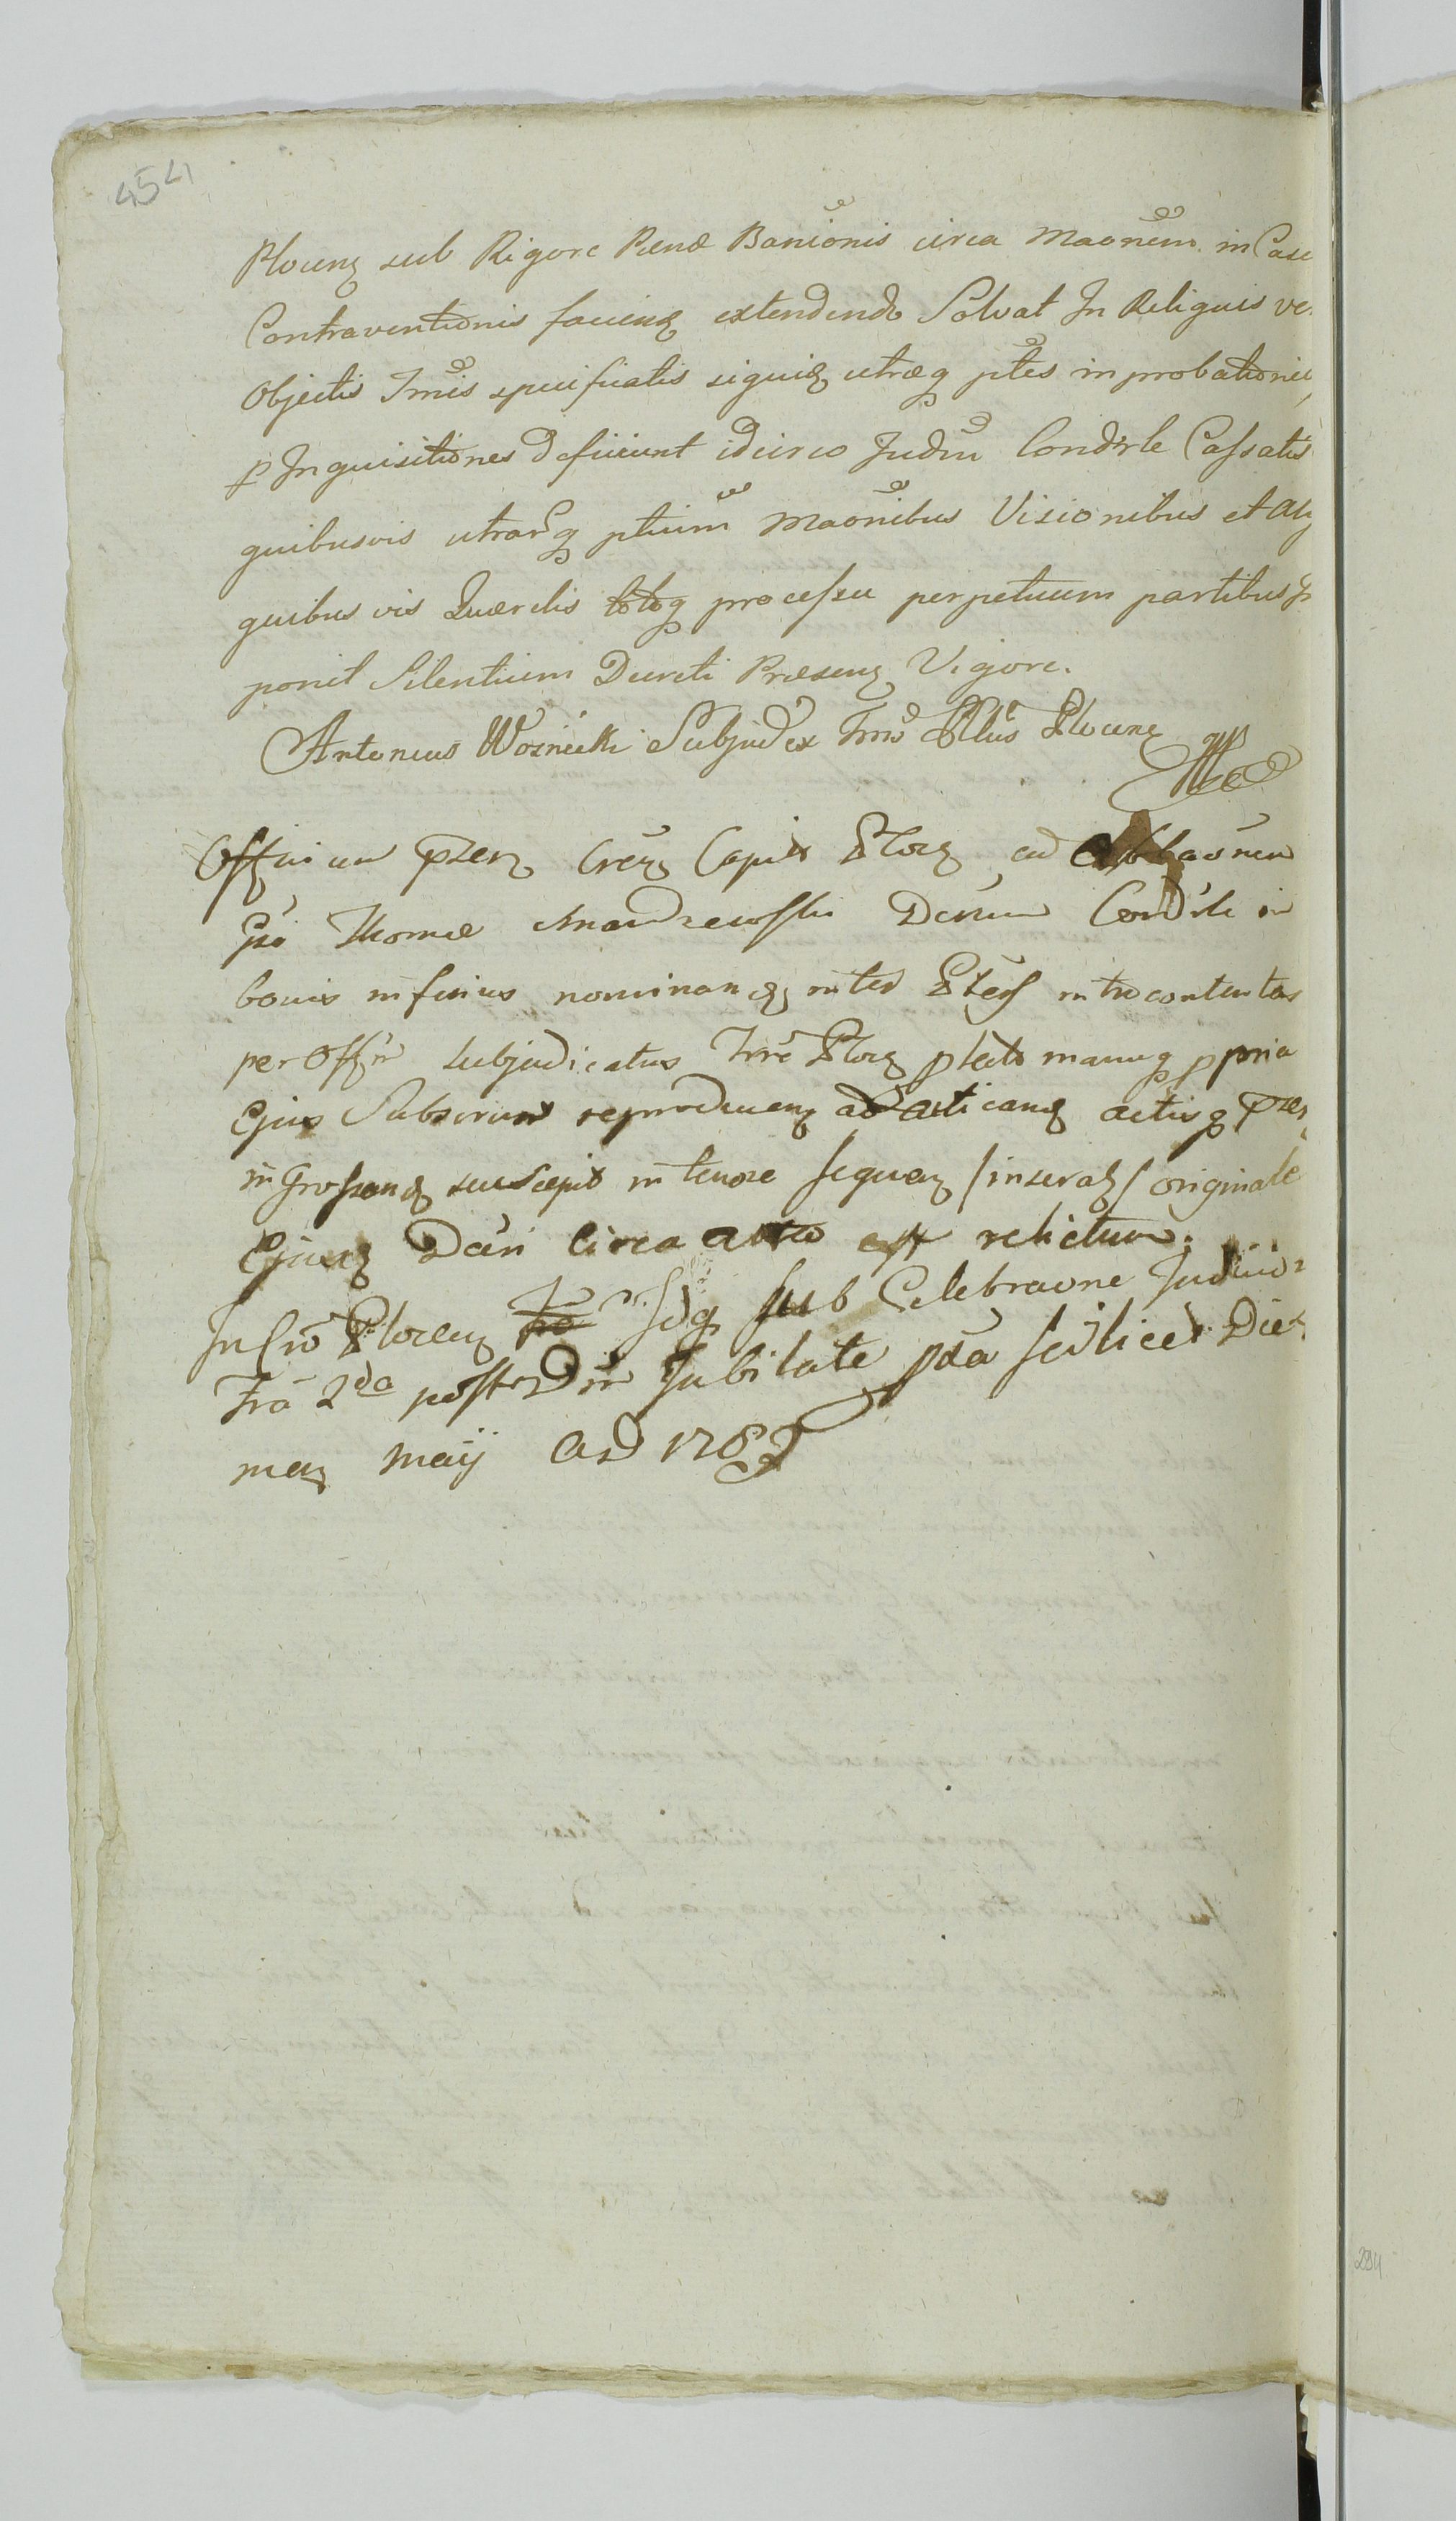 454
Plocenꝫ sub Rigore Pænæ Baniōnis circa Maōnem in Casu
Contraventionis facienꝫ extendendo Solvat In Reliquis ve
Objectis Trm̃is specificatis siquidꝫ utræqꝫ ptẽs in probationib
p Inquisitiones deficiunt idcirco Judiũ Condrle Cassatis
quibusvis utrarqꝫ ptium̃ Maõnibus Visionibus et
quibus vis Querelis totoqꝫ processu perpetuum partibus
ponit Silentium Decreti Præsenꝫ Vigore.
Antonius Woznicki Subjudex Trrũ Pltũs Plocenꝫ
Officium pzenꝫ Crẽꝫ Capit Plocꝫ ad
Gsi Thomæ Decrum Condrle in
bonis inferius nominandꝫ inter Ptes introcontentas
per Offm̃ Subjudicatus Trrẽ Plocꝫ manuqꝫ ppria
Ejus Subscrimt reproducenꝫ ad acticandꝫ actisqꝫ pzen
in Grossandꝫ suscepit in tenore sequenꝫ / inseratꝫ / originale
Ejusdꝫ Decri circa acta est relictum.
In Crõ Plocen Frã Idqꝫ sub Celebraone Judiuor
Frã 2da post Dm̃ Jubilate pxã scilicet Die
menꝫ Maÿ AD
294